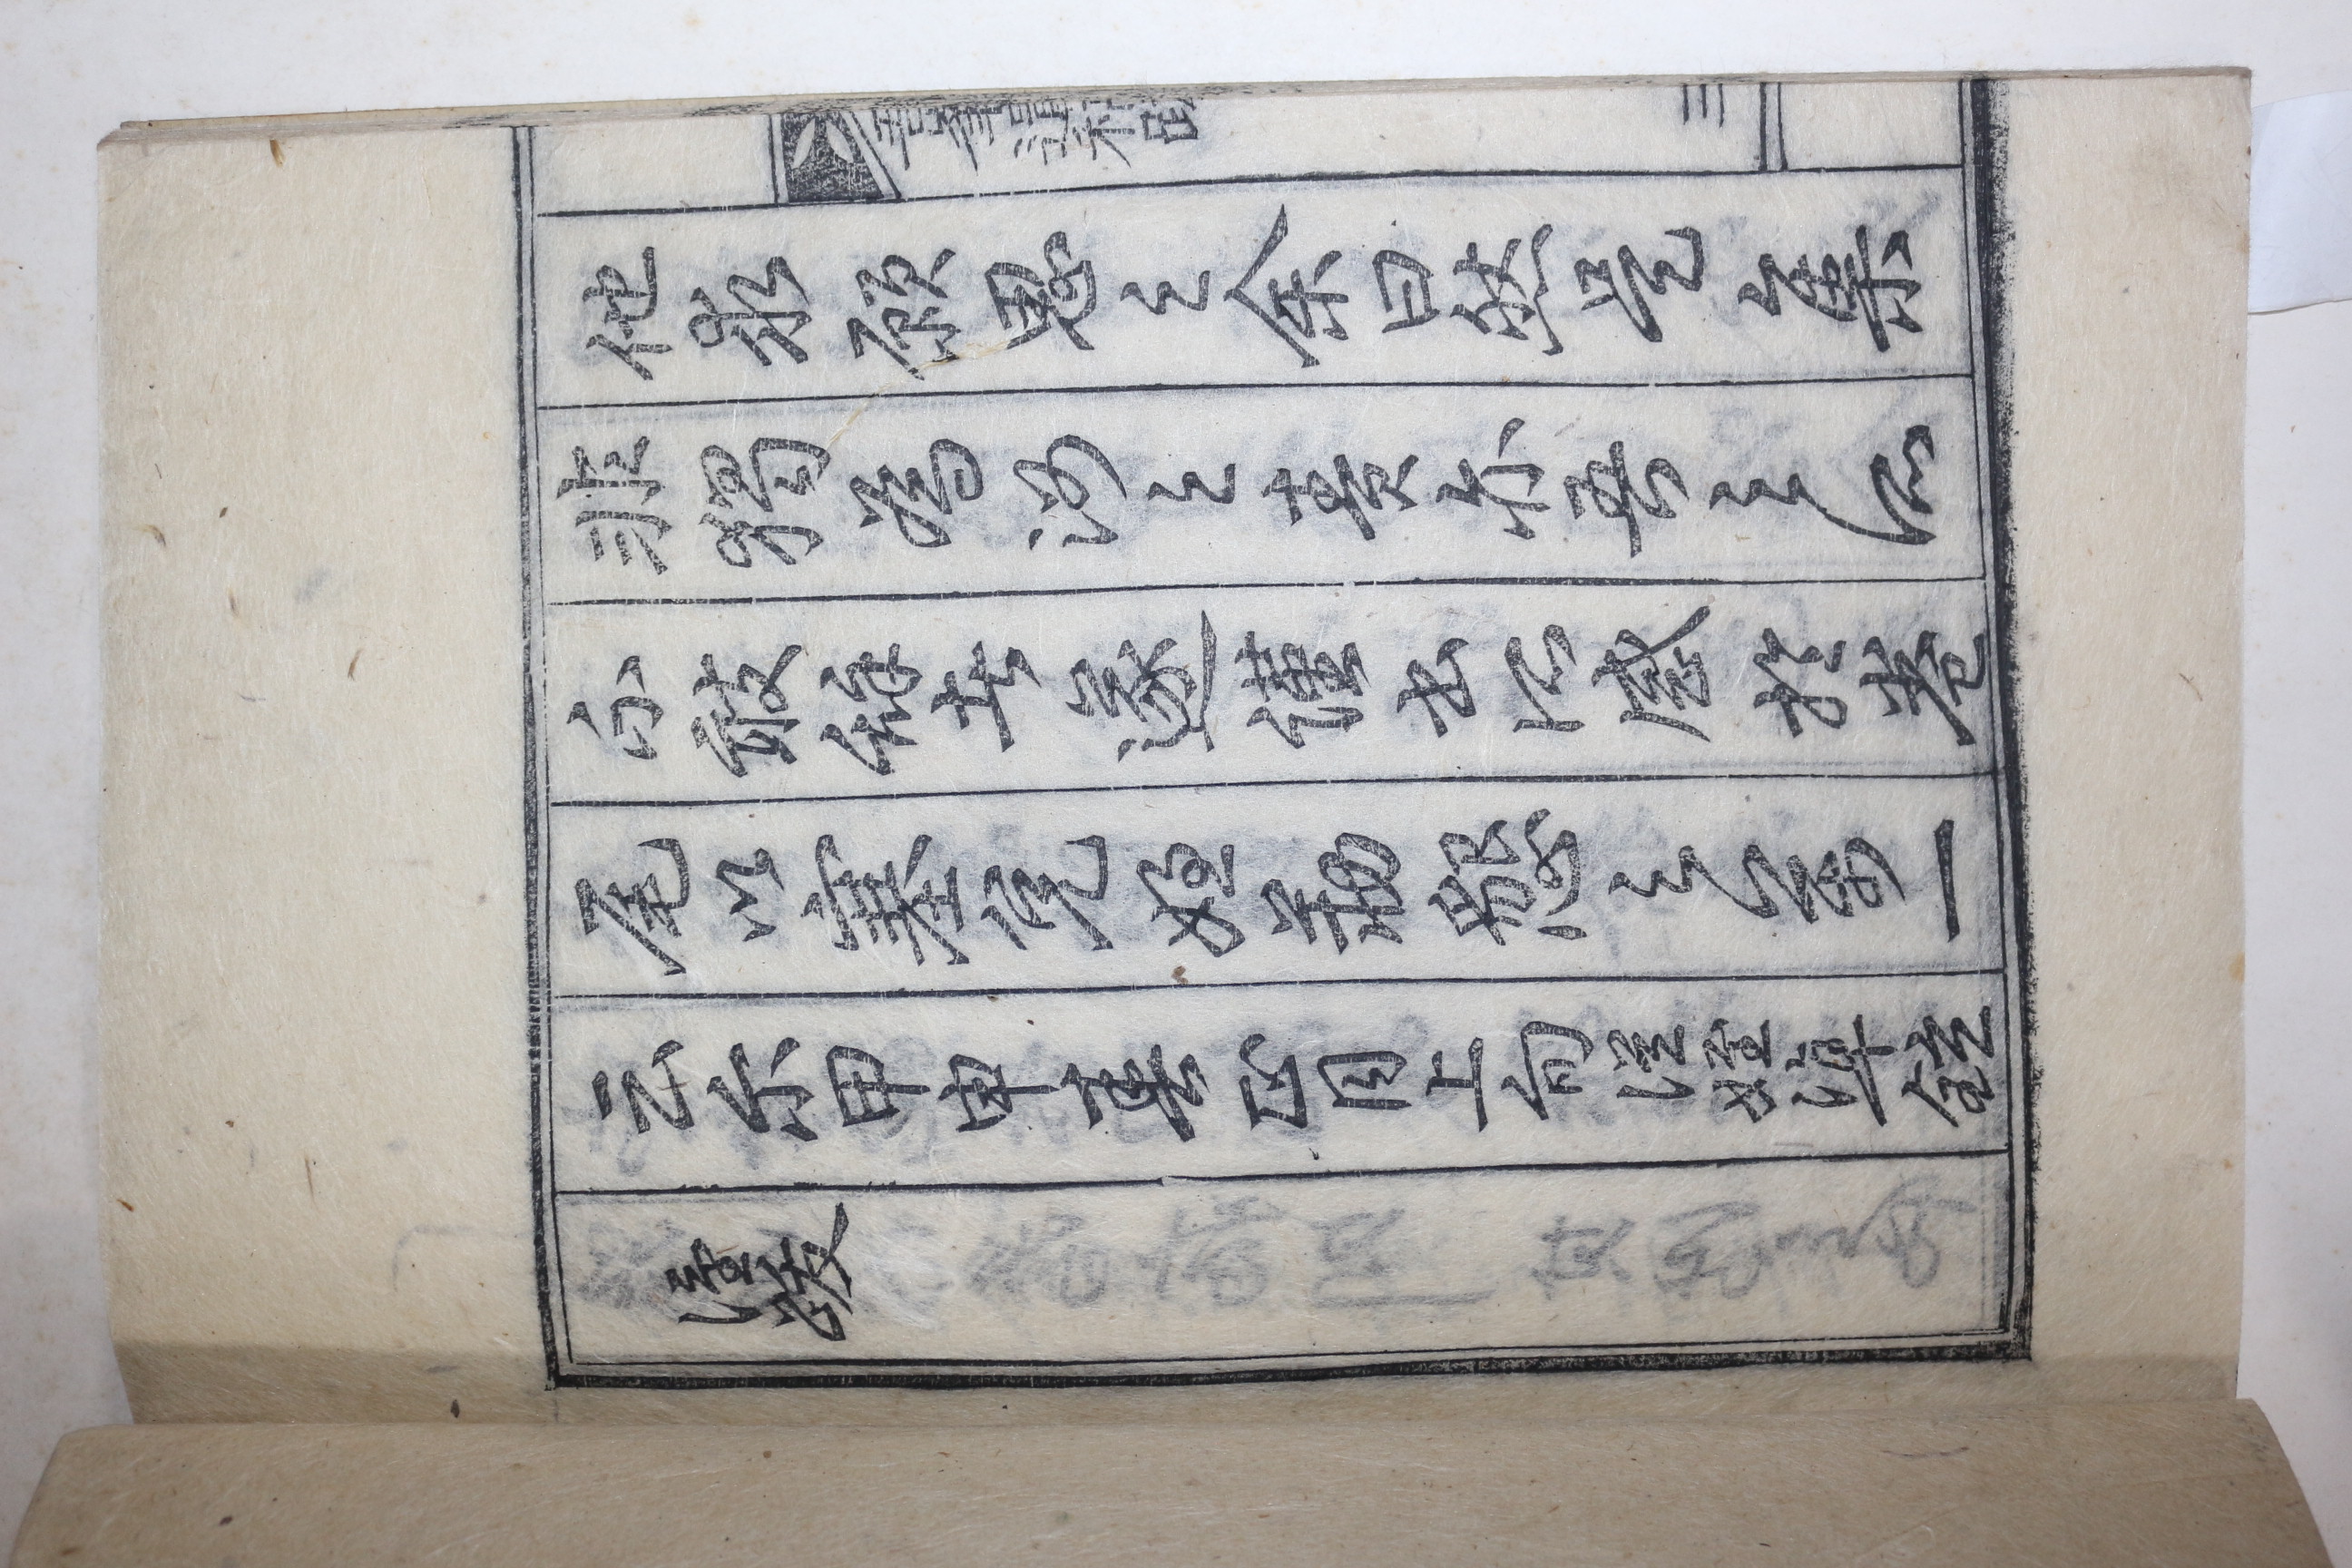 遺稿跋
三
他求願思之余曰然是集
非獨為汝之責亦吾之所
不敢辭者遂謹書所感於卷
尾以塞姪勤懇之萬一
云尓甲申春正月上旬從姪
謹跋